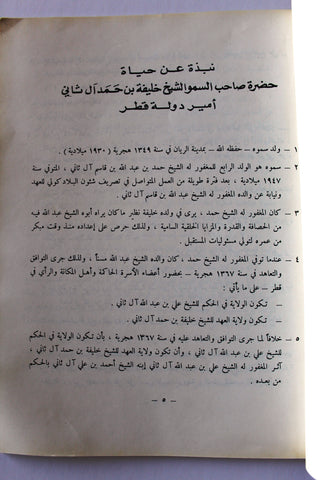 نبذة عن حياة
حضرة صاحب السمو الشيخ خليفة بن حمد آل ثاني
أمير دولة قطر
١ – ولد سموه – حفظه الله – بمدينة الريان في سنة ١٣٤٩ هجرية (١٩٣٠ ميلادية) .
٢ – سموه هو الولد الرابع للمغفور له الشيخ حمد بن عبد الله بن قاسم آل ثاني، المتوفي سنة
١٩٤٧ ميلادية ، بعد فترة طويلة من العمل المتواصل في تصريف شئون البلاد كولي للعهد
ونيابة عن والده المغفور له الشيخ عبد الله بن قاسم آل ثاني .
٣ – كان المغفور له الشيخ حمد ، يرى في ولده خليفة نظير ما كان يراه أبوه الشيخ عبد الله فيه
من الحصافة والقدرة والمزايا الخلقية السامية ، ولذلك حرص على إعداده منذ مقتبل
من عمره لتولي مسئوليات المستقبل .
٤ – عندما توفي المغفور له الشيخ حمد ، كان والده الشيخ عبد الله مسناً ، ولذلك جرى التوافق
والتعاهد في سنة ١٣٦٧ هجرية – بحضور أعضاء الأسرة الحاكمة وأهل المكانة والرأي في
قطر – على ما يأتي :
– تكون الولاية في الحكم للشيخ علي بن عبد الله آل ثاني .
– وتكون ولاية العهد للشيخ خليفة بن حمد آل ثاني .
٥ – خلافاً لما جرى التوافق والتعاهد عليه في سنة ١٣٦٧ هجرية ، بأن تكون الولاية في الحكم
للشيخ علي بن عبد الله آل ثاني ، وأن تكون ولاية العهد للشيخ خليفة بن حمد آل ثاني ،
آثر المغفور له الشيخ علي بن عبد الله آل ثاني إبنه الشيخ أحمد بن علي آل ثاني بالحكم
من بعده .
– ٥ –